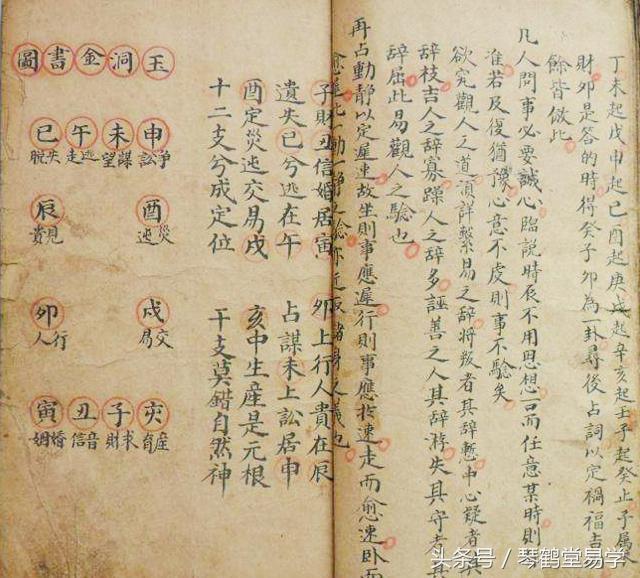 丁未起戊申起己酉起庚戌起辛亥起壬子起癸止子屬
財卯是答的時得癸子卯為一卦尋後占詞以定禍福吉
餘皆倣此
凡人問事必要誠心臨說時辰不用思想言而任意某時則
准若反復猶豫心意不虔則事不驗矣
欲究觀人之道須詳繫易之辭將叛者其辭慙中心疑者其
辭枝吉人之辭寡躁人之辭多誣善之人其辭游失其守者其
辭屈此易觀人之驗也
再占動靜以定遲速故坐則事應遲行則事應於速走而愈速臥而
愈遲此一動一靜之驗亦近取諸身之義也
子財丑信婚居寅 卯上行人貴在辰
遺失巳兮逃在午 占謀未上訟居申
酉定災迍交易戌 亥中生産是元根
十二支兮成定位 干支莫錯自然神
玉洞金書圖
申未午巳
爭訟 謀望 逃走 失脫
酉 辰
災迍 見貴
戌 卯
交易 行人
亥子丑寅
産育 求財 音信 婚姻
头条号 / 琴鹤堂易学